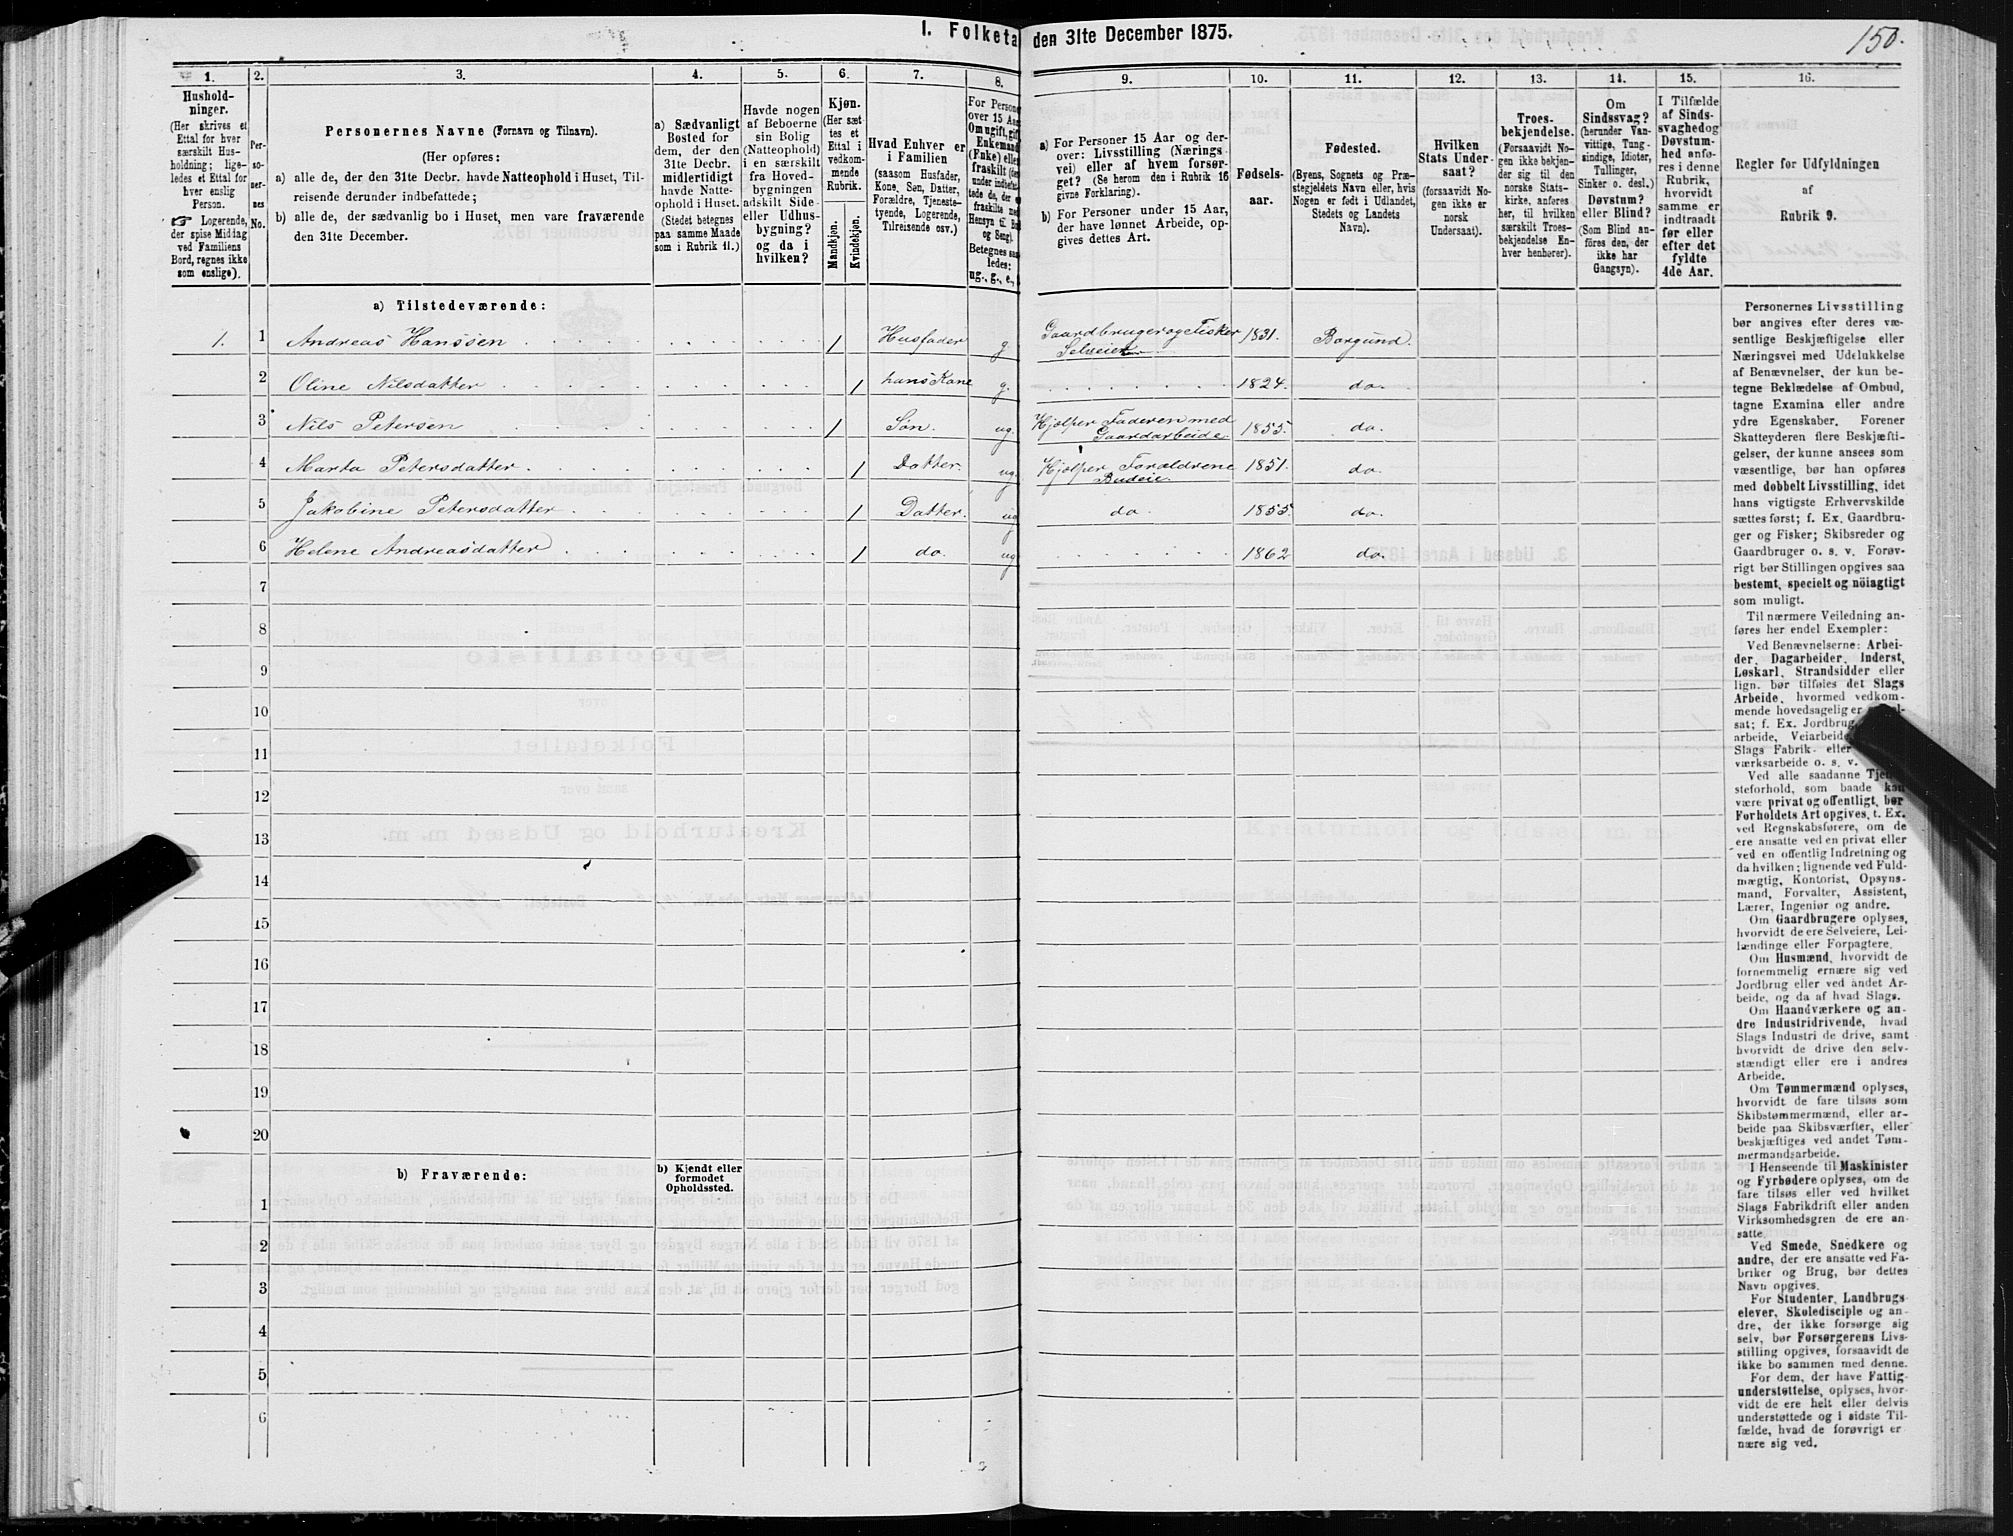 1. Folketa den 31te December 1875.
150.
1.
2.
3.
4.
5.
6.
7.
8.
9.
10.
11.
12.
13.
14.
15.
16.
Hushold-
ninger.
(Her skrives et
Ettal for hver
særskilt Hus-
holdning; lige-
ledes et Ettal for
hver enslig
Person.
☞ Logerende,
der spise Middag
ved Familiens
Bord, regnes ikke
som enslige).
Per-
so-
ner-
nes
No.
Personernes Navne (Fornavn og Tilnavn).
(Her opføres:
a) alle de, der den 31te Decbr. havde Natteophold i Huset, Til-
reisende derunder indbefattede;
b) alle de, der sædvanlig bo i Huset, men vare fraværende
den 31te December.
a) Sædvanligt
Bosted for
dem, der den
31te Decbr.
midlertidigt
havde Natte-
ophold i Huset.
(Stedet betegnes
paa samme Maade
som i Rubrik 11.)
Havde nogen
af Beboerne
sin Bolig
(Natteophold)
i en særskilt
fra Hoved-
bygningen
adskilt Side-
eller Udhus-
bygning?
og da i
hvilken?
Kjøn.
(Her sæt-
tes et
Ettal i
vedkom-
mende
Rubrik.
Mandkjøn.
Kvindekjøn.
Hvad Enhver er
i Familien
(saasom Husfader,
Kone, Søn, Datter,
Forældre, Tjeneste-
tyende, Logerende,
Tilreisende osv.)
For Persone
over 15 Aa
Om ugift, gif
Enkemand
(Enke) elle
fraskilt (de
under indbefat
tede de, der e
fraskilte me
Hensyn til Bo
og Seng).
Betegnes saa
ledes:
ug., g., e.,
a) For Personer 15 Aar og der-
over: Livsstilling (Nærings-
vei) eller af hvem forsør-
get? (Se herom den i Rubrik 16
givne Forklaring).
b) For Personer under 15 Aar,
der have lønnet Arbeide, op-
gives dettes Art.
Fødsels-
aar.
Fødested.
(Byens, Sognets og Præ-
stegjeldets Navn eller, hvis
Nogen er født i Udlandet,
Stedets og Landets
Navn).
Hvilken
Stats Under-
saat?
(forsaavidt No-
gen ikke er
norsk
Undersaat).
Troes-
bekjendelse.
(Forsaavidt No-
gen ikke bekjen-
der sig til den
norske Stats-
kirke, anføres
her, til hvilken
særskilt Troes-
bekjendelse En-
hver henhører).
Om
Sindssvag?
(herunder Van-
vittige, Tung-
sindige, Idioter,
Tullinger,
Sinker o. desl.)
Døvstum?
eller Blind?
(Som Blind an-
føres den, der
ikke har
Gangsyn).
I Tilfælde
af Sinds-
svaghedog
Døvstum-
hed anfø-
res i denne
Rubrik,
hvorvidt
samme er
indtraadt
før eller
efter det
fyldte
4de Aar.
Regler for Udfyldningen
af
Rubrik 9.
a) Tilstedeværende:
1. 1 Andreas Hanssen 1 Husfader g. Gaardbruger og Fisker Selveier 1831. Borgund.
2 Oline Nilsdatter 1 hans Kone g. 1824. do.
3 Nils Petersen 1 Søn. ug. Hjælper Faderen med Gaardarbeide. 1855. do.
4 Marta Petersdatter 1 Datter. ug. Hjælper Forældrene Budeie. 1851. do.
5 Jakobine Petersdatter 1 Datter. ug do. 1855. do.
6 Helene Andreasdatter 1 do. ug 1862 do.
7
8
9
10
11
12
13
14
15
16
17
18
19
20
b) Fraværende:
b) Kjendt eller
formodet
Opholdssted.
1
2
3
4
5
6
Personernes Livsstilling
bør angives efter deres væ-
sentlige Beskjæftigelse eller
Næringsvei med Udelukkelse
af Benævnelser, der kun be-
tegne Beklædelse af Ombud,
tagne Examina eller andre
ydre Egenskaber. Forener
Skatteyderen flere Beskjæfti-
gelser, der kunne ansees som
væsentlige, bør han opføres
med dobbelt Livsstilling, idet
hans vigtigste Erhvervskilde
sættes først; f. Ex. Gaardbru-
ger og Fisker; Skibsreder og
Gaardbruger o. s. v. Forøv-
rigt bør Stillingen opgives saa
bestemt, specielt og nöiagtigt
som muligt.
Til nærmere Veiledning an-
føres her endel Exempler:
Ved Benævnelserne: Arbei-
der, Dagarbeider, Inderst,
Løskarl, Strandsidder eller
lign. bør tilføies det Slags
Arbeide, hvormed vedkom-
mende hovedsagelig er
sat; f. Ex. Jordbrug
arbeide, Veiarbeide
Slags Fabrik- eller
værksarbeide o. s. v.
Ved alle saadanne Tjene
steforhold, som baade kan
være privat og offentligt, bør
Forholdets Art opgives, t. Ex.
ved Regnskabsførere, om de
ere ansatte ved en privat eller
ved en offentlig Indretning og
da hvilken; lignende ved Fuld-
mægtig, Kontorist, Opsyns-
mand, Forvalter, Assistent,
Lærer, Ingeniør og andre.
Om Gaardbrugere oplyses,
hvorvidt de ere Selveiere, Lei-
lændinge eller Forpagtere.
Om Husmænd, hvorvidt de
fornemmelig ernære sig ved
Jordbrug eller ved andet Ar-
beide, og da af hvad Slags.
Om Haandværkere og an-
dre Industridrivende, hvad
Slags Industri de drive, samt
hvorvidt de drive den selv-
stændigt eller ere i andres
Arbeide.
Om Tømmermænd oplyses,
hvorvidt de fare tilsøs som
Skibstømmermænd, eller ar-
beide paa Skibsværfter, eller
beskjæftiges ved andet Tøm-
mermandsarbeide.
I Henseende til Maskinister
og Fyrbødere oplyses, om de
fare tilsøs eller ved hvilket
Slags Fabrikdrift eller anden
Virksomhedsgren de ere an-
satte.
Ved Smede, Snedkere og
andre, der ere ansatte ved Fa-
briker og Brug, bør dettes
Navn opgives.
For Studenter, Landbrugs-
elever, Skoledisciple og an-
dre, der ikke forsørge sig
selv, bør Forsørgerens Livs-
stilling opgives, forsaavidt de
ikke bo sammen med denne.
For dem, der have Fattig-
understøttelse, oplyses, hvor-
vidt de ere helt eller delvis
understøttede og i sidste Til-
fælde, hvad de forøvrigt er
nære sig ved.